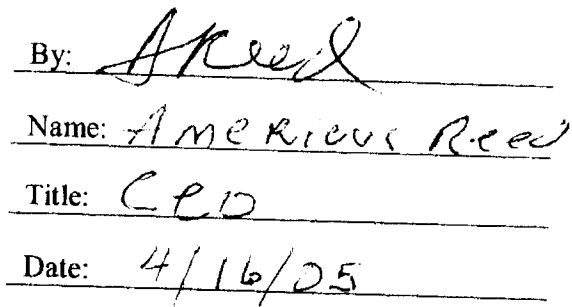 By: AReed
Name: Americus Reed
Title: CEO
Date: 4/16/05